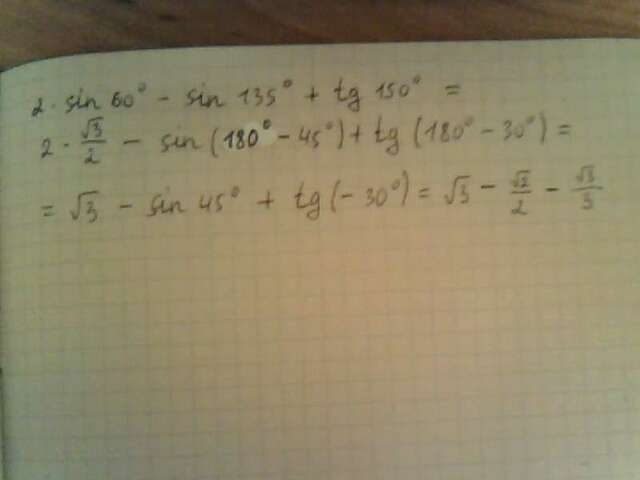 2 · sin 60° − sin 135° + tg 150° =
2 · √3/2 − sin (180° − 45°) + tg (180° − 30°) =
= √3 − sin 45° + tg (− 30°) = √3 − √2/2 − √3/3